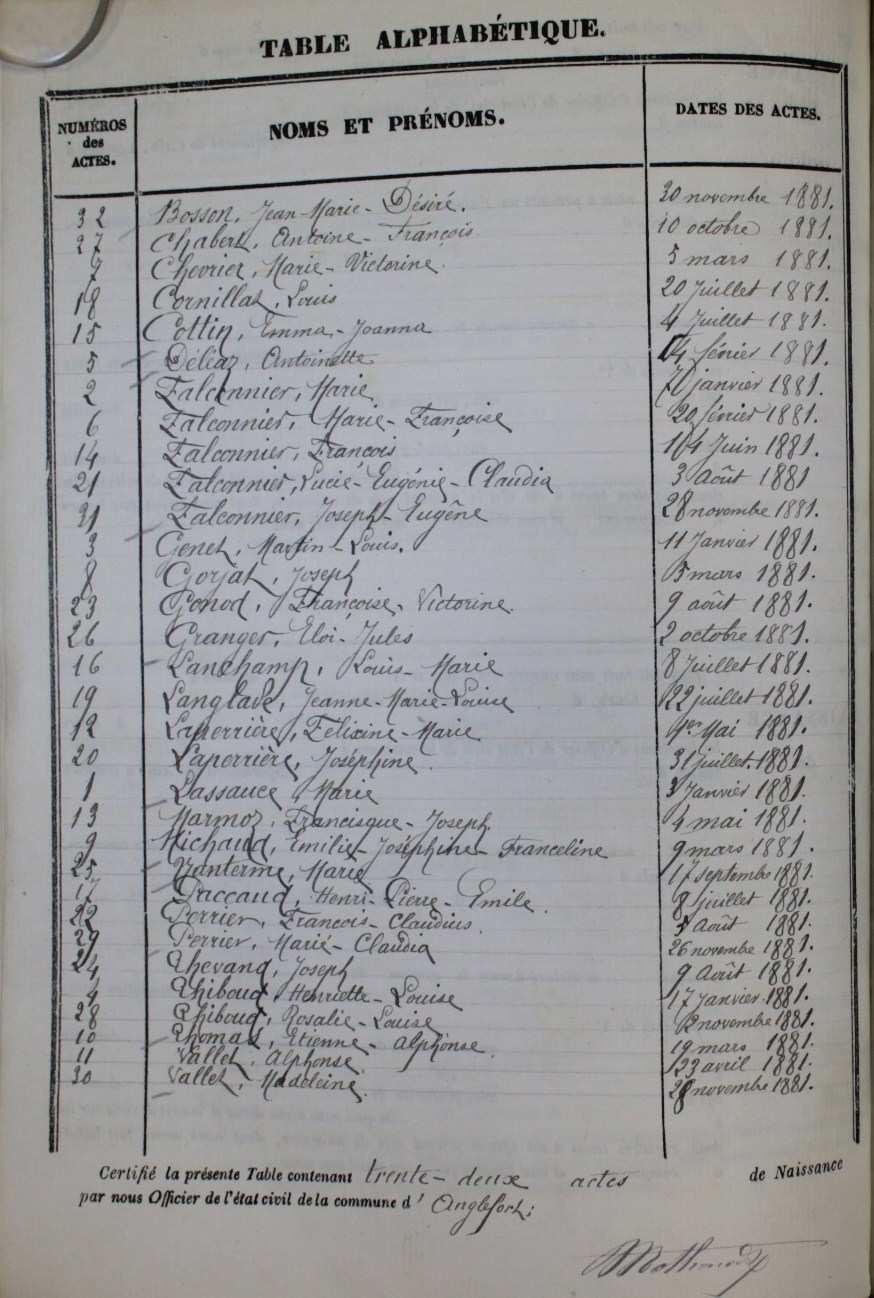 TABLE ALPHABÉTIQUE.
NUMÉROS des ACTES. NOMS ET PRÉNOMS. DATES DES ACTES.
32 Bosson, Jean-Marie-Désiré. 30 novembre 1881.
27 Chabert, Antoine-François 10 octobre 1881.
7 Chevrier, Marie-Victorine. 5 mars 1881.
18 Cornillat, Louis 20 Juillet 1881.
15 Cottin, Emma-Joanna 4 Juillet 1881.
5 Déléaz, Antoinette 14 février 1881.
2 Falconnier, Marie 7 janvier 1881.
6 Falconnier, Marie-Françoise 20 février 1881.
14 Falconnier, François 14 Juin 1881.
21 Falconnier, Lucie-Eugénie-Claudia 3 Août 1881
31 Falconnier, Joseph-Eugêne 28 novembre 1881.
3 Genet, Martin-Louis. 11 Janvier 1881.
8 Gorjat, Joseph 5 mars 1881.
23 Gonod, Françoise-Victorine. 9 août 1881.
26 Granger, Eloi-Jules 2 octobre 1881.
16 Lanchamp, Louis-Marie 8 Juillet 1881.
19 Langlade, Jeanne-Marie-Louise 22 juillet 1881.
12 Laperrière, Felicine-Marie 1er Mai 1881.
20 Laperrière, Joséphine. 31 juillet. 1881.
1 Lassauce, Marie 3 Janvier 1881.
13 Marmoz, Francisque-Joseph. 4 mai 1881.
9 Michaud, Emilie-Joséphine-Franceline 9 mars 1881.
25 Nanterme, Marie 17 septembre 1881.
17 Paccaud, Henri-Pierre-Emile. 8 juillet 1881.
22 Perrier, François-Claudius. 5 Août 1881.
29 Perrier, Marie-Claudia 26 novembre 1881.
24 Thevand, Joseph 9 Août 1881.
4 Thiboud, Henriette-Louise 17 Janvier. 1881.
28 Thiboud, Rosalie-Louise novembre 1881.
10 Thomas, Etienne-Alphonse. 19 mars 1881.
11 Vallet, Alphonse. 23 avril 1881.
30 Vallet, Madeleine. 28 novembre 1881.
Certifié la présente Table contenant trente-deux actes de Naissance
par nous Officier de l'état civil de la commune d' Anglefort;